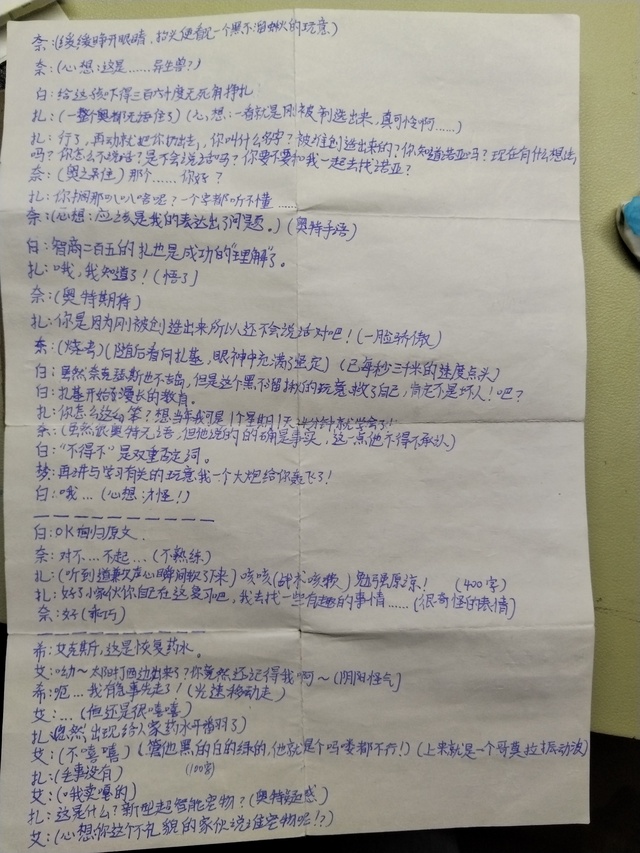 奈:(缓缓睁开眼睛,抬头便看见一个黑不溜啾的玩意)
奈:(心想:这是……异生兽?)
白:给这孩吓得三百六十度无死角挣扎
扎:(一整个奥都无语住了)(心想:一看就是刚被制造出来,真可怜啊……)
扎:行了,再动就把你扔出去,你叫什么名字?被谁创造出来的?你知道诺亚吗?现在有什么想法
吗?你怎么不说话?是不会说话吗?你要不要和我一起去找诺亚?
奈:(奥之呆住)那个……你好?
扎:你搁那叭叭啥呢?一个字都听不懂……
奈:(心想:应该是我的表达出了问题。)(奥特手语)
白:智商二百五的扎也是成功的"理解"了。
扎:哦,我知道了!(悟了)
奈:(奥特期待)
扎:你是因为刚被创造出来所以还不会说话对吧!(一脸骄傲)
奈:(烧考)(随后看向扎基,眼神中充满了坚定)(已每秒三千米的速度点头)
白:虽然奈克瑟斯也不专岛,但是这个黑不溜揪的玩意救了自己,肯定不是坏人!吧?
白:扎基开始了漫长的教育。
扎:你怎么这么笨?想当年我可是1个星期1天 分钟就学会了!
奈:(虽然很奥特无语,但他说的的确是事实,这一点他不得不承认)
白:"不得不"是双重否定词。
梦:再讲与学习有关的玩意我一个大炮给你轰飞了!
白:哦…(心想:才怪!)
白:OK回归原文.
奈:对不…不起…(不熟练)
扎:(听到道歉后心瞬间软了下来)咳咳(战术咳嗽)勉强原谅!(400字)
扎:好了小家伙你自己在这复习吧,我去找一些有趣的事情……(很奇怪的表情)
奈:好(乖巧)
希:艾克斯,这是恢复药水。
艾:呦~太阳打西边出来了?你竟然还记得我啊~(阴阳怪气)
希:呃…我有急事先走了!(光速移动走)
艾:…(但还是很嘻嘻)
扎忽然出现给人家药水干 了)
艾:(不嘻嘻)(管他黑的白的绿的,他就是个吗喽都不行!)(上来就是一个哥莫拉振动波)
扎:(毛事没有) (100字)
艾:(哦卖嘎的)
扎:这是什么?新型超智能宠物?(奥特疑惑)
艾:(心想你这个不礼貌的家伙说谁宠物呢!?)